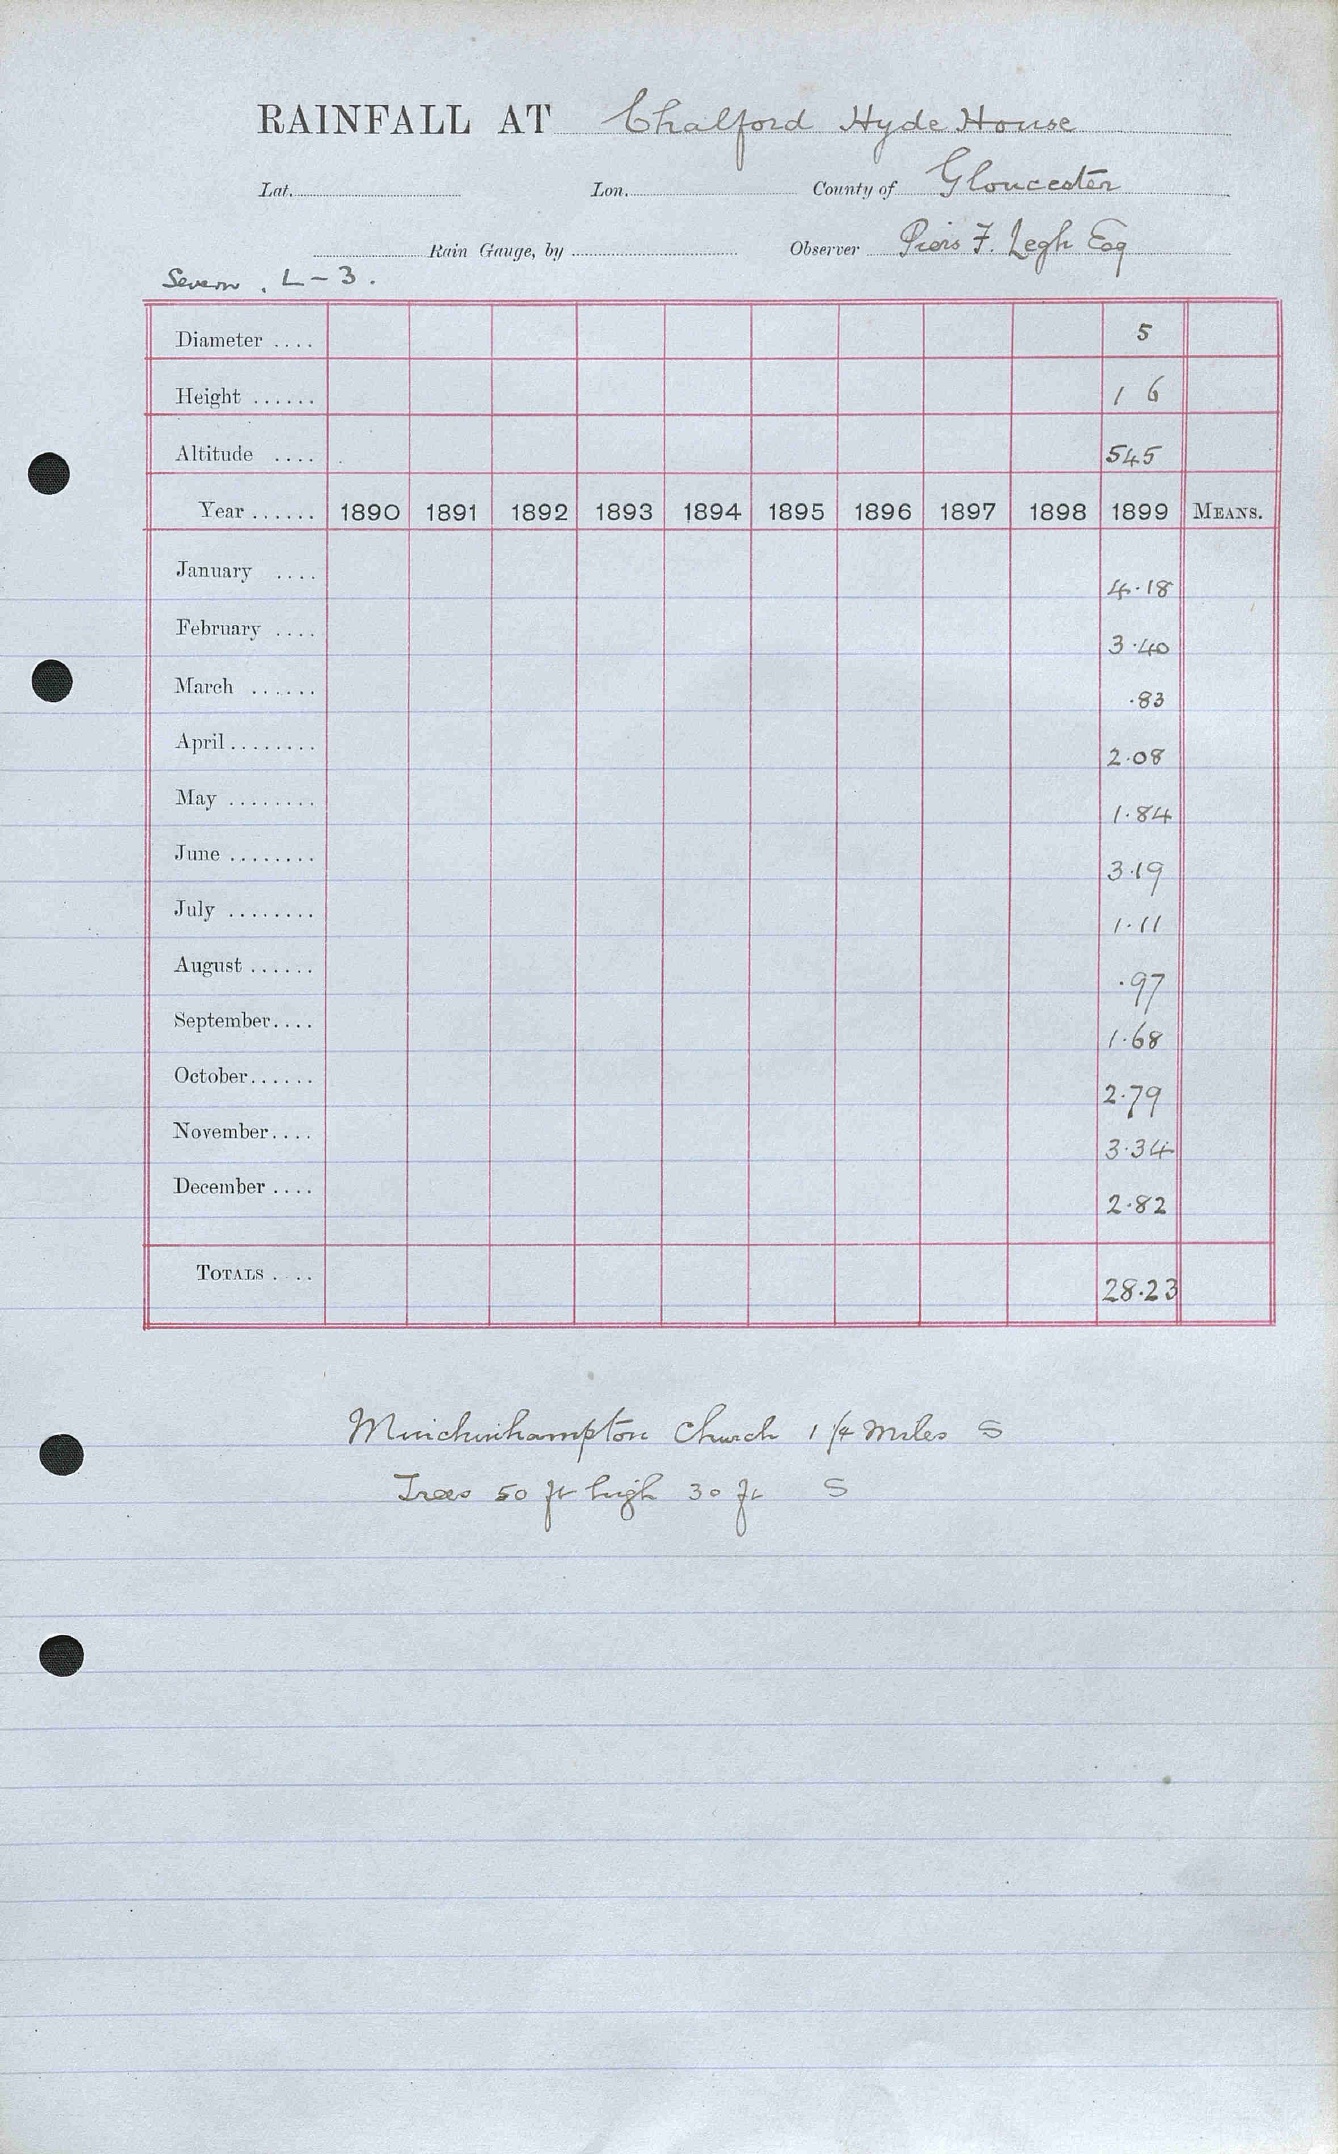 RAINFALL AT Chalford Hyde House
Lat. Lon. County of Gloucester
Rain Gauge, by Observer Piers F. Legh Esq
Severn. L-3.
Diameter .... 5
Height ...... 1 6
Altitude .... 545
Year ...... 1890 1891 1892 1893 1894 1895 1896 1897 1898 1899 MEANS.
January .... 4.18
February .... 3.40
March ...... .83
April ........ 2.08
May ........ 1.84
June ........ 3.19
July ........ 1.11
August ...... .97
September .... 1.68
October ...... 2.79
November .... 3.34
December .... 2.82
TOTALS .... 28.23
Minchinhampton Church 1 1/4 miles S
Trees 50 ft high 30 ft S